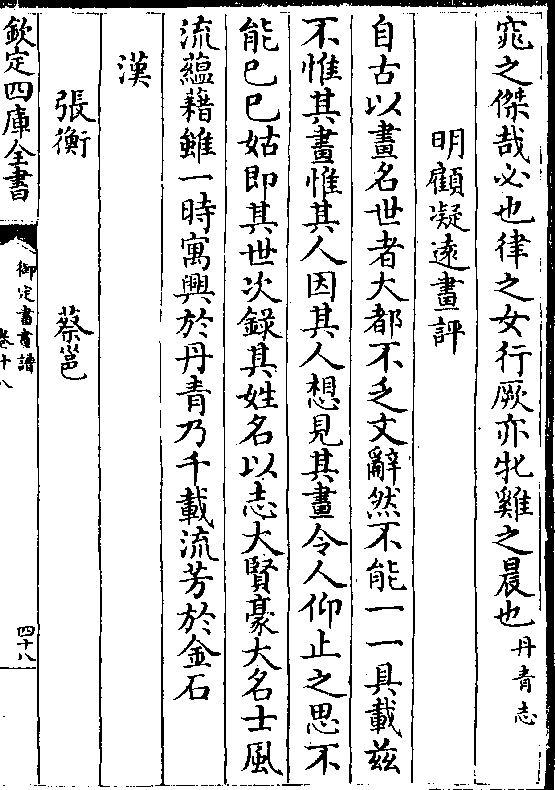 窕之傑哉必也律之女行厥亦牝雞之晨也丹青志
明顧凝遠畫評
自古以畫名世者大都不乏文辭然不能一一具載茲
不惟其畫惟其人因其人想見其畫令人仰止之思不
能已已姑即其世次錄其姓名以志大賢豪大名士風
流蘊藉雖一時寓興於丹青乃千載流芳於金石
漢
張衡 蔡邕
欽定四庫全書
御定書畫譜
卷十八
四十八